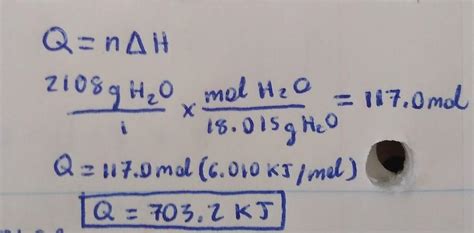 Q = nΔH
2108g H₂O / 1 × mol H₂O / 18.015g H₂O = 117.0 mol
Q = 117.0 mol (6.010 KJ/mol)
Q = 703.2 KJ